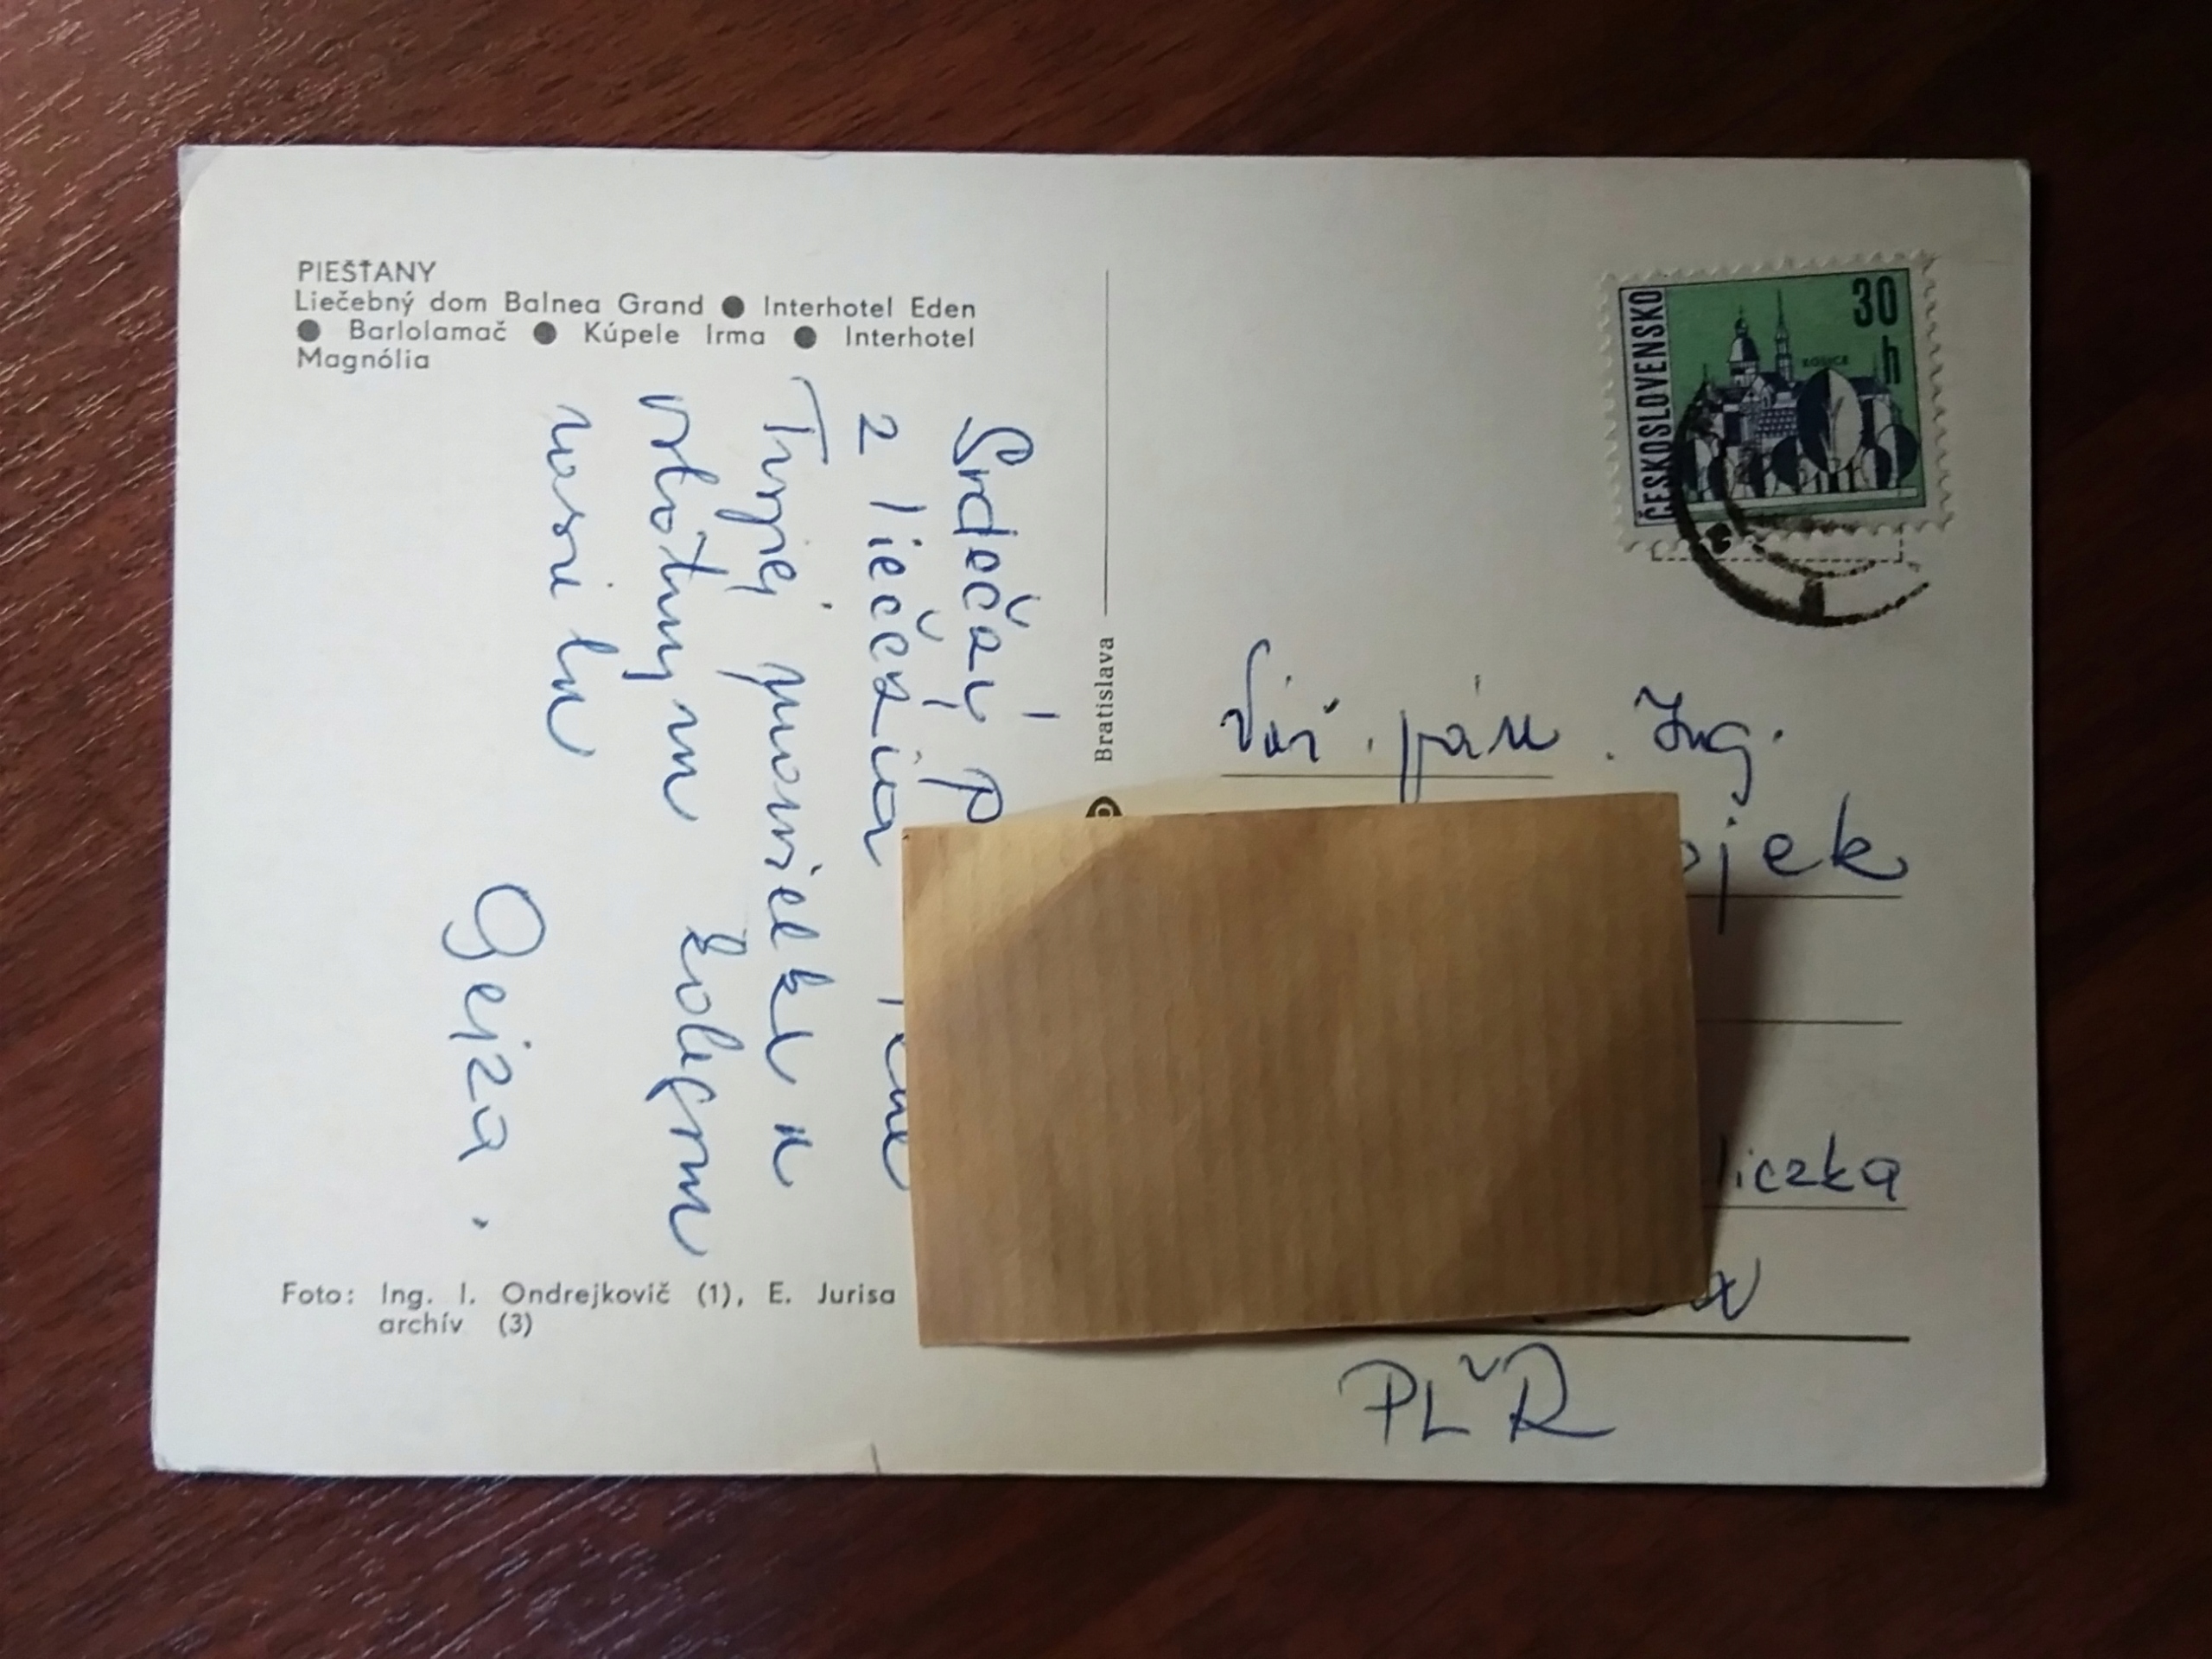 PIEŠŤANY
Liečebný dom Balnea Grand ● Interhotel Eden
● Barlolamač ● Kúpele Irma ● Interhotel
Magnólia
Srdečný
z liečenia
Tvojej manželke a
vrlotným kolegom
Gejza.
Foto: Ing. I. Ondrejkovič (1), E. Jurisa
archív (3)
Bratislava
ČESKOSLOVENSKO
30
h
KOŠICE
Váž. pán. Ing.
ojek
liczka
PĽR